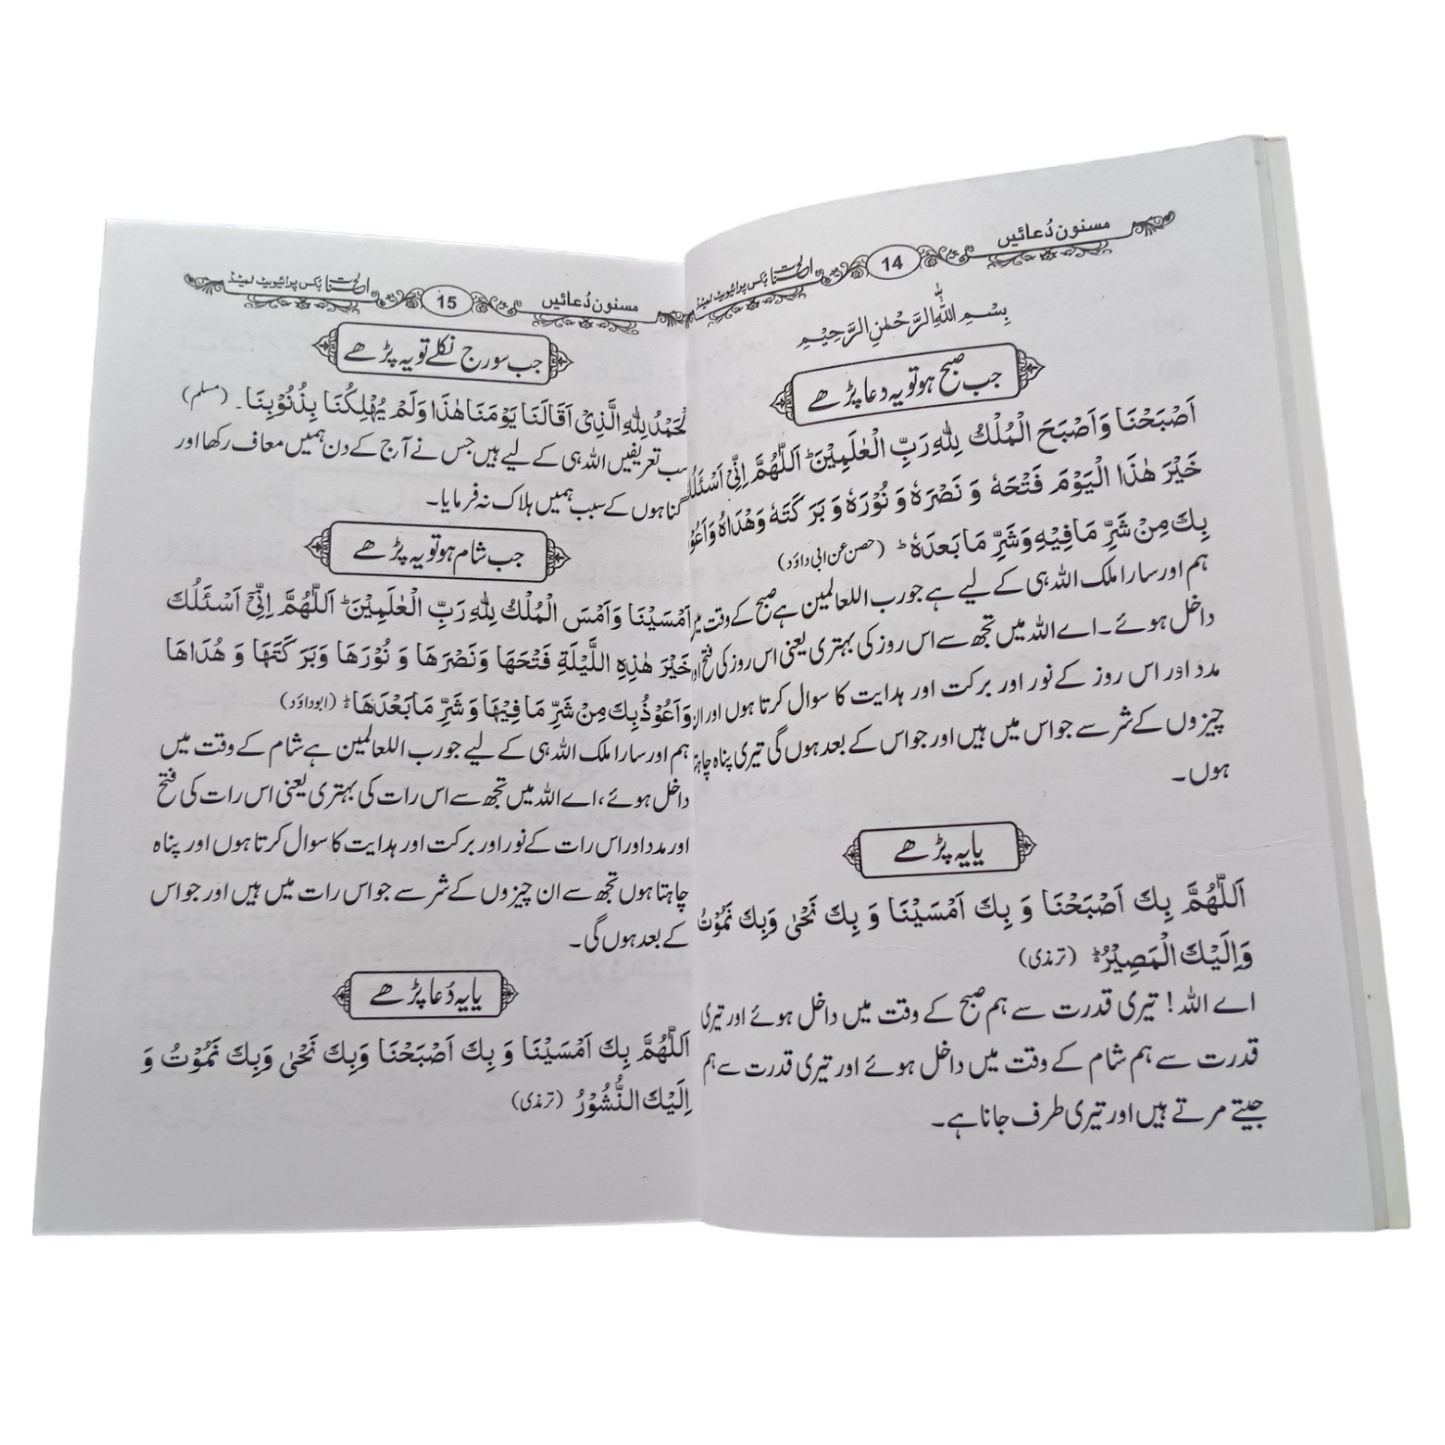 مسنون دُعائیں
14
بکس پرائیویٹ لمیٹڈ
بِسْمِ اللّٰهِ الرَّحْمٰنِ الرَّحِيْمِ
جب صبح ہو تو یہ دعا پڑھے
اَصْبَحْنَا وَاَصْبَحَ الْمُلْكُ لِلّٰهِ رَبِّ الْعٰلَمِيْنَ ؕ اَللّٰهُمَّ اِنِّىْ اَسْئَلُكَ
خَيْرَ هٰذَا الْيَوْمَ فَتْحَهٗ وَ نَصْرَهٗ وَ نُوْرَهٗ وَ بَرَكَتَهٗ وَهُدَاهُ وَاَعُوْ
بِكَ مِنْ شَرِّ مَا فِيْهِ وَشَرِّ مَا بَعدَهٗ ؕ (حصن عن ابی داؤد)
ہم اور سارا ملک اللہ ہی کے لیے ہے جو رب اللعالمین ہے صبح کے وقت میں
داخل ہوئے۔ اے اللہ میں تجھ سے اس روز کی بہتری یعنی اس روز کی فتح اور
مدد اور اس روز کے نور اور برکت اور ہدایت کا سوال کرتا ہوں اور ان
چیزوں کے شر سے جو اس میں ہیں اور جو اس کے بعد ہوں گی تیری پناہ چاہتا
ہوں۔
یا یہ پڑھے
اَللّٰهُمَّ بِكَ اَصْبَحْنَا وَ بِكَ اَمْسَيْنَا وَ بِكَ نَحْىٰ وَبِكَ نَمُوْتُ
وَاِلَيْكَ الْمَصِيْرُ ؕ (ترمذی)
اے اللہ! تیری قدرت سے ہم صبح کے وقت میں داخل ہوئے اور تیری
قدرت سے ہم شام کے وقت میں داخل ہوئے اور تیری قدرت سے ہم
جیتے مرتے ہیں اور تیری طرف جانا ہے۔
مسنون دُعائیں
15
بکس پرائیویٹ لمیٹڈ
جب سورج نکلے تو یہ پڑھے
لْحَمْدُ لِلّٰهِ الَّذِىْ اَقَالَنَا يَوْمَنَا هٰذَا وَلَمْ يُهْلِكْنَا بِذُنُوْبِنَا۔ (مسلم)
سب تعریفیں اللہ ہی کے لیے ہیں جس نے آج کے دن ہمیں معاف رکھا اور
گناہوں کے سبب ہمیں ہلاک نہ فرمایا۔
جب شام ہو تو یہ پڑھے
اَمْسَيْنَا وَاَمْسَ الْمُلْكُ لِلّٰهِ رَبِّ الْعٰلَمِيْنَ ؕ اَللّٰهُمَّ اِنِّىْٓ اَسْئَلُكَ
خَيْرَ هٰذِهِ اللَّيْلَةِ فَتْحَهَا وَنَصْرَهَا وَ نُوْرَهَا وَبَرَكَتَهَا وَ هُدَاهَا
وَاَعُوْذُ بِكَ مِنْ شَرِّ مَا فِيْهَا وَ شَرِّ مَا بَعْدَهَا ؕ (ابوداؤد)
ہم اور سارا ملک اللہ ہی کے لیے جو رب اللعالمین ہے شام کے وقت میں
داخل ہوئے، اے اللہ میں تجھ سے اس رات کی بہتری یعنی اس رات کی فتح
اور مدد اور اس رات کے نور اور برکت اور ہدایت کا سوال کرتا ہوں اور پناہ
چاہتا ہوں تجھ سے ان چیزوں کے شر سے جو اس رات میں ہیں اور جو اس
کے بعد ہوں گی۔
یا یہ دُعا پڑھے
اَللّٰهُمَّ بِكَ اَمْسَيْنَا وَ بِكَ اَصْبَحْنَا وَبِكَ نَحْىٰ وَبِكَ نَمُوْتُ وَ
اِلَيْكَ النُّشُوْرُ (ترمذی)